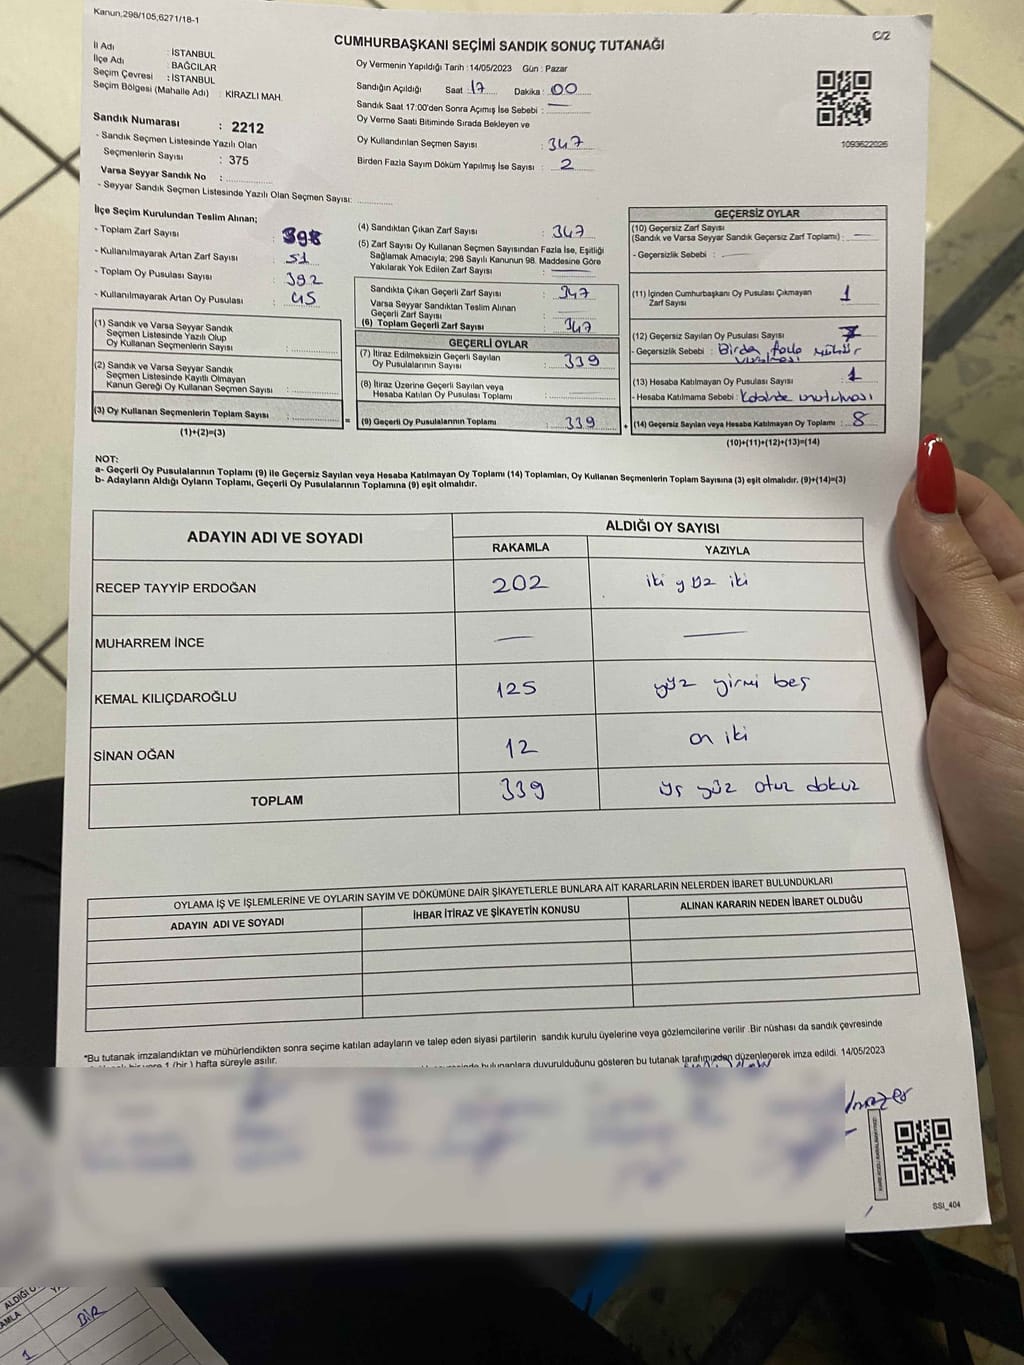 Kanun,298/105,6271/18-1
C/2
CUMHURBAŞKANI SEÇİMİ SANDIK SONUÇ TUTANAĞI
İl Adı : İSTANBUL
İlçe Adı : BAĞCILAR
Seçim Çevresi : İSTANBUL
Seçim Bölgesi (Mahalle Adı) : KİRAZLI MAH.
Sandık Numarası : 2212
- Sandık Seçmen Listesinde Yazılı Olan
Seçmenlerin Sayısı : 375
Varsa Seyyar Sandık No :
- Seyyar Sandık Seçmen Listesinde Yazılı Olan Seçmen Sayısı:
Oy Vermenin Yapıldığı Tarih : 14/05/2023 Gün : Pazar
Sandığın Açıldığı Saat : 17 Dakika : 00
Sandık Saat 17:00'den Sonra Açımış İse Sebebi : —
Oy Verme Saati Bitiminde Sırada Bekleyen ve
Oy Kullandırılan Seçmen Sayısı : 347
Birden Fazla Sayım Döküm Yapılmış İse Sayısı : 2
1093622026
İlçe Seçim Kurulundan Teslim Alınan;
- Toplam Zarf Sayısı : 398
- Kullanılmayarak Artan Zarf Sayısı : 51
- Toplam Oy Pusulası Sayısı : 392
- Kullanılmayarak Artan Oy Pusulası : 45
(1) Sandık ve Varsa Seyyar Sandık
Seçmen Listesinde Yazılı Olup
Oy Kullanan Seçmenlerin Sayısı :
(2) Sandık ve Varsa Seyyar Sandık
Seçmen Listesinde Kayıtlı Olmayan
Kanun Gereği Oy Kullanan Seçmen Sayısı :
(3) Oy Kullanan Seçmenlerin Toplam Sayısı : =
(1)+(2)=(3)
(4) Sandıktan Çıkan Zarf Sayısı : 347
(5) Zarf Sayısı Oy Kullanan Seçmen Sayısından Fazla İse, Eşitliği
Sağlamak Amacıyla; 298 Sayılı Kanunun 98. Maddesine Göre
Yakılarak Yok Edilen Zarf Sayısı : —
Sandıkta Çıkan Geçerli Zarf Sayısı : 347
Varsa Seyyar Sandıktan Teslim Alınan
Geçerli Zarf Sayısı : —
(6) Toplam Geçerli Zarf Sayısı : 347
GEÇERLİ OYLAR
(7) İtiraz Edilmeksizin Geçerli Sayılan
Oy Pusulalarının Sayısı : 339
(8) İtiraz Üzerine Geçerli Sayılan veya
Hesaba Katılan Oy Pusulası Toplamı :
(9) Geçerli Oy Pusulalarının Toplamı : 339 +
GEÇERSİZ OYLAR
(10) Geçersiz Zarf Sayısı
(Sandık ve Varsa Seyyar Sandık Geçersiz Zarf Toplamı) : —
- Geçersizlik Sebebi : —
(11) İçinden Cumhurbaşkanı Oy Pusulası Çıkmayan
Zarf Sayısı : 1
(12) Geçersiz Sayılan Oy Pusulası Sayısı
- Geçersizlik Sebebi : Birden fazla mühür
(13) Hesaba Katılmayan Oy Pusulası Sayısı : 1
- Hesaba Katılmama Sebebi : unutulması
(14) Geçersiz Sayılan veya Hesaba Katılmayan Oy Toplamı : 8
(10)+(11)+(12)+(13)=(14)
NOT:
a- Geçerli Oy Pusulalarının Toplamı (9) ile Geçersiz Sayılan veya Hesaba Katılmayan Oy Toplamı (14) Toplamları, Oy Kullanan Seçmenlerin Toplam Sayısına (3) eşit olmalıdır. (9)+(14)=(3)
b- Adayların Aldığı Oyların Toplamı, Geçerli Oy Pusulalarının Toplamına (9) eşit olmalıdır.
ADAYIN ADI VE SOYADI
ALDIĞI OY SAYISI
RAKAMLA YAZIYLA
RECEP TAYYİP ERDOĞAN 202 iki yüz iki
MUHARREM İNCE — —
KEMAL KILIÇDAROĞLU 125 yüz yirmi beş
SİNAN OĞAN 12 on iki
TOPLAM 339 üç yüz otuz dokuz
OYLAMA İŞ VE İŞLEMLERİNE VE OYLARIN SAYIM VE DÖKÜMÜNE DAİR ŞİKAYETLERLE BUNLARA AİT KARARLARIN NELERDEN İBARET BULUNDUKLARI
ADAYIN ADI VE SOYADI İHBAR İTİRAZ VE ŞİKAYETİN KONUSU ALINAN KARARIN NEDEN İBARET OLDUĞU
*Bu tutanak imzalandıktan ve mühürlendikten sonra seçime katılan adayların ve talep eden siyasi partilerin sandık kurulu üyelerine veya gözlemcilerine verilir .Bir nüshası da sandık çevresinde
1 (bir ) hafta süreyle asılır.
bulunanlara duyurulduğunu gösteren bu tutanak tarafımızdan düzenlenerek imza edildi. 14/05/2023
SSI_404
ALDIĞI
BİR
1